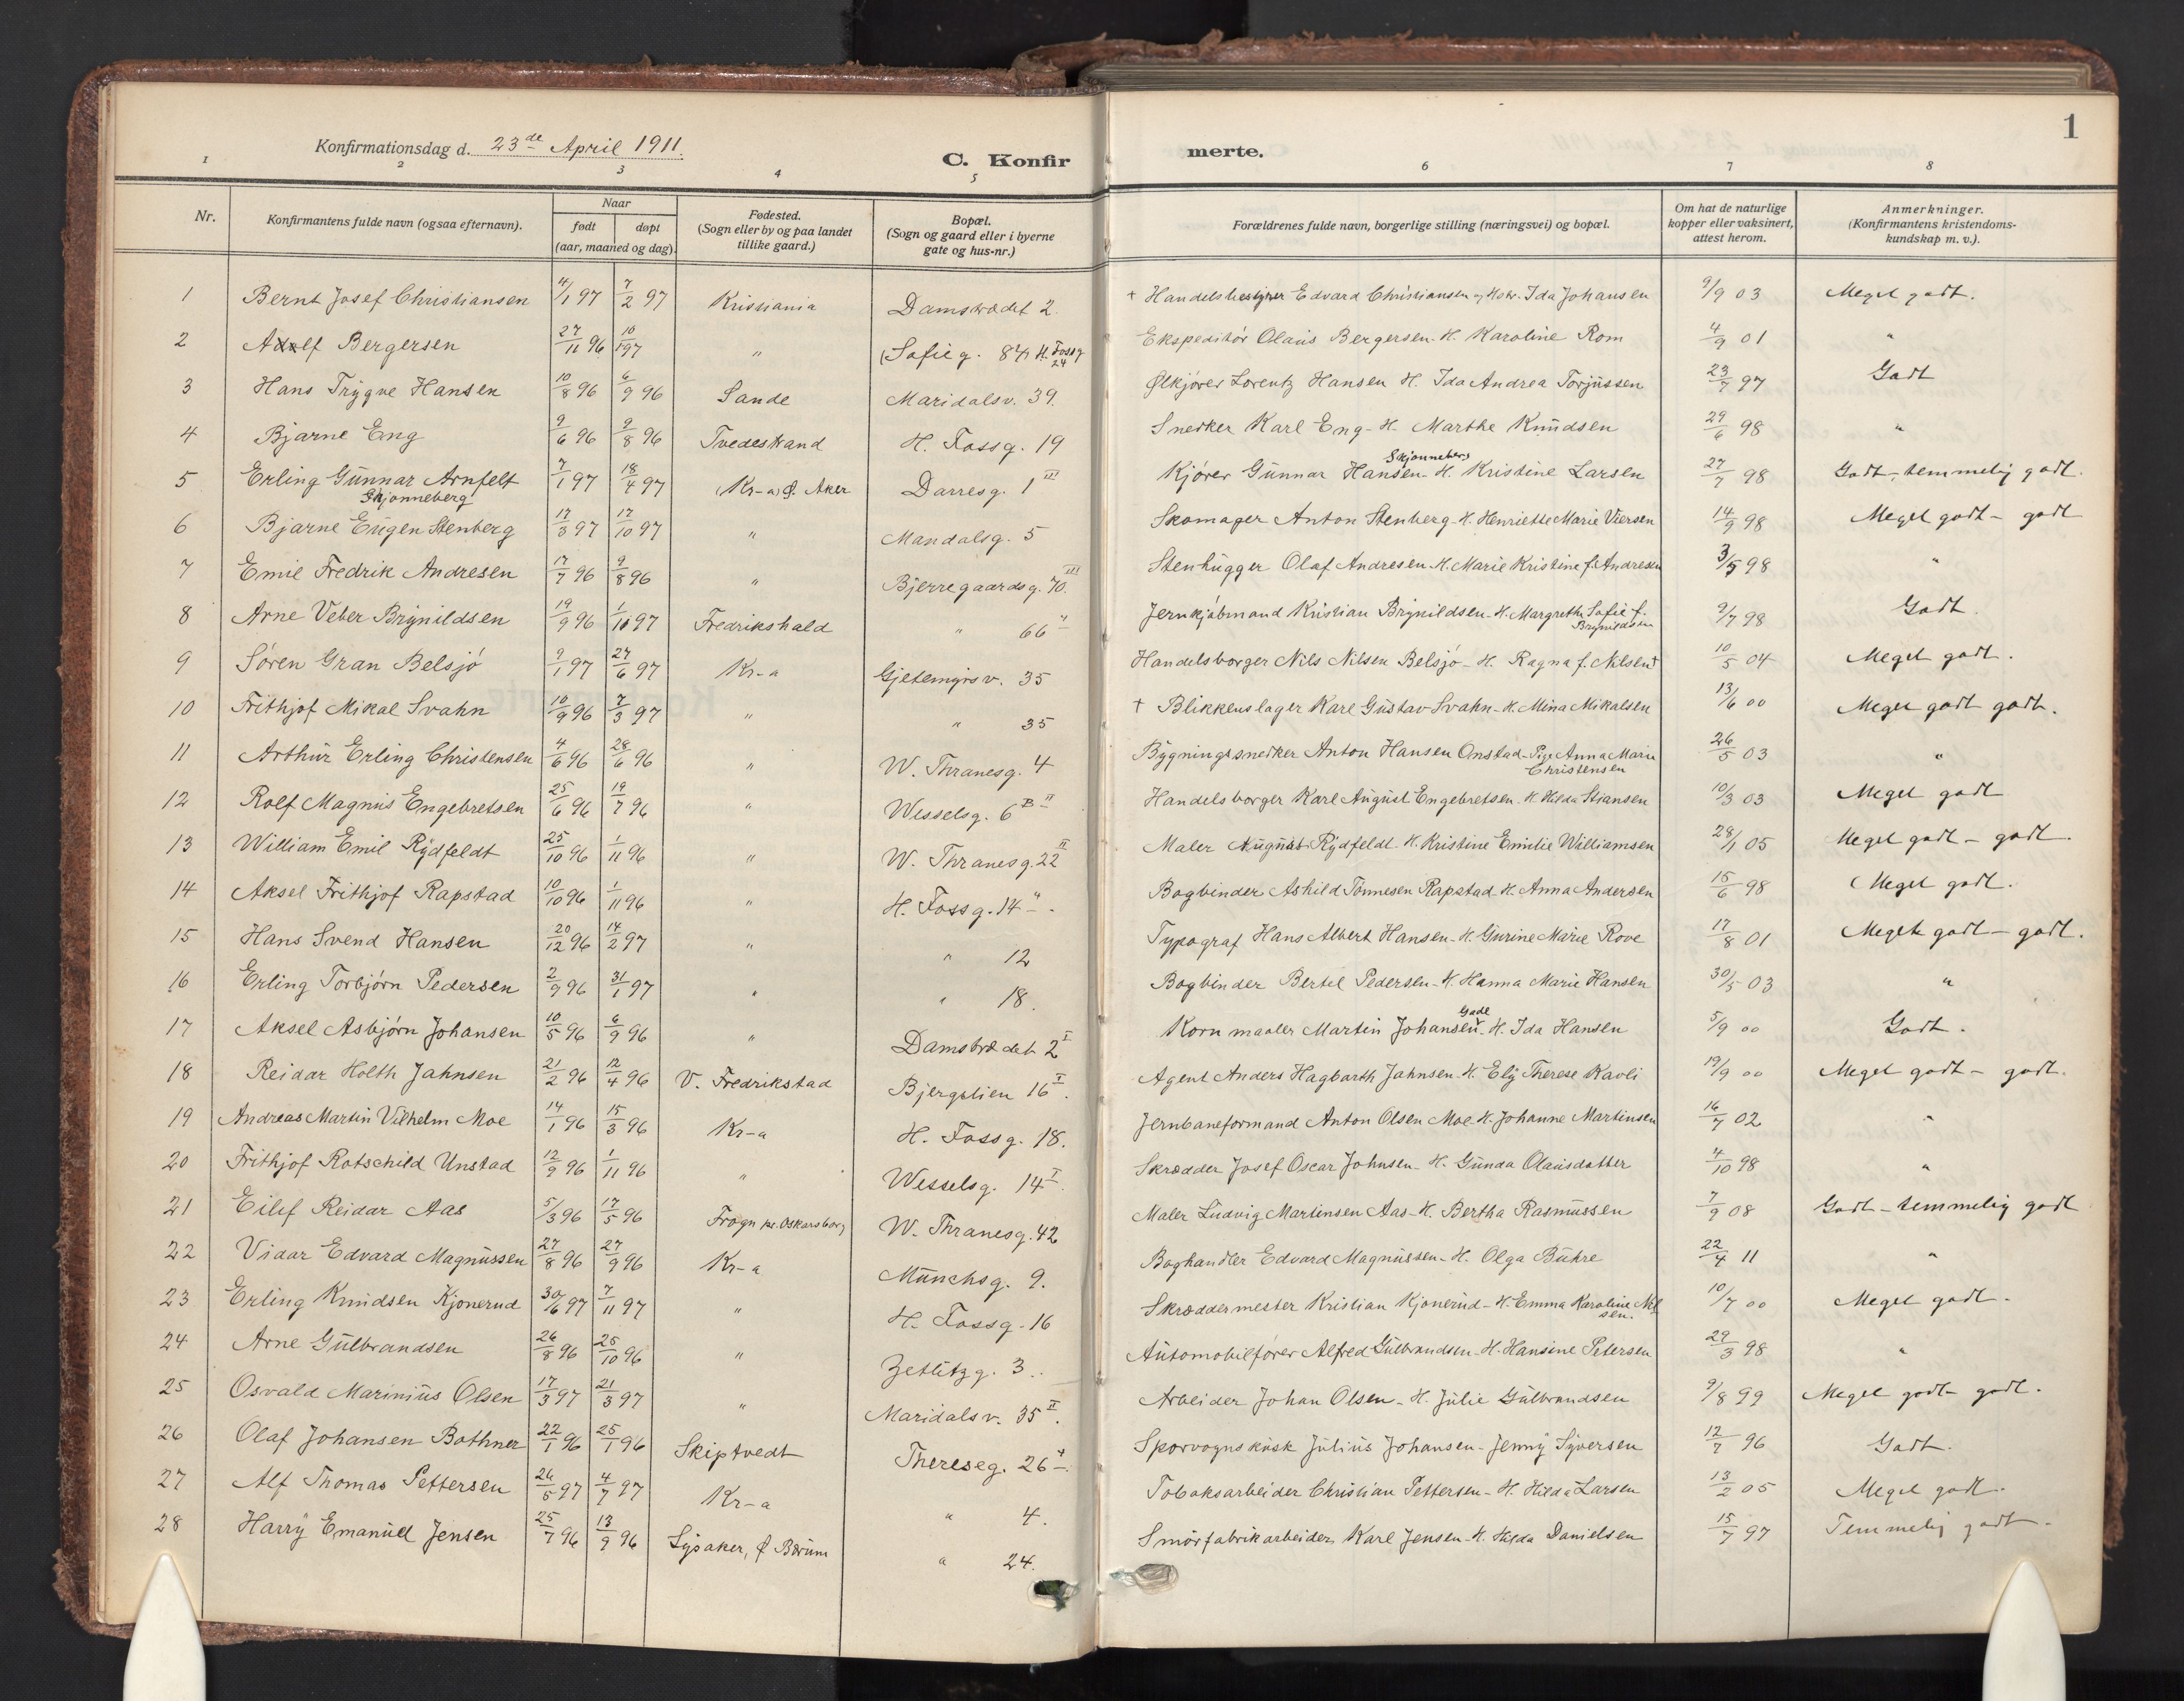 Konfirmationsdag d. 23de April 1911.
C. Konfirmerte.
1
1 2 3 4 5 6 7 8
Nr. | Konfirmantens fulde navn (ogsaa efternavn). | Naar født døpt (aar, maaned og dag) | Fødested. (Sogn eller by og paa landet tillike gaard.) | Bopæl. (Sogn og gaard eller i byerne gate og hus-nr.) | Forældrenes fulde navn, borgerlige stilling (næringsvei) og bopæl. | Om hat de naturlige kopper eller vaksinert, attest herom. | Anmerkninger. (Konfirmantens kristendomskundskap m. v.).
1 Bernt Josef Christiansen 4/1 97 7/2 97 Kristiania Damstrædet 2. + Handelsbestyrer Edvard Christiansen og Ida Johansen 9/9 03 Meget godt.
2 Bergersen 27/11 96 10/1 97 " Sofieg. H. Fossg 24 Ekspeditör Olaus Bergersen H. Karoline Rom 4/9 01 "
3 Hans Trygve Hansen 10/8 96 6/9 96 Sande Maridalsv. 39. Ølkjörer Lorentz Hansen H. Ida Andrea Torjussen 23/7 97 Godt
4 Bjarne Eng 9/6 96 9/8 96 Tvedestrand H. Fossg. 19 Snedker Karl Eng - H. Marthe Knudsen 29/6 98 "
5 Erling Gunnar Arnfelt Skjonneberg 7/1 97 18/4 97 (Kr-a) Ø. Aker Darresg. 1 III Kjörer Gunnar Hansen Skjonneberg H. Kristine Larsen 27/7 98 Godt, temmelig godt.
6 Bjarne Eugen Stenberg 17/3 97 17/10 97 " Mandalsg. 5 Skomager Anton Stenberg - H. Henriette Marie Viersen 14/9 98 Meget godt - godt
7 Emil Fredrik Andresen 17/7 96 9/8 96 " Bjerregaardsg. 70. III Stenhugger Olaf Andresen - H. Marie Kristine f. Andresen 3/5 98 "
8 Arne Veber Brynildsen 19/9 96 1/10 97 Fredrikshald " 66 " Jernkjöbmand Kristian Brynildsen - H. Margrethe Sofie f. Brynildsen 9/7 98 Godt.
9 Sören Gran Belsjö 9/1 97 27/6 97 Kr-a Gjetemyrsv. 35 Handelsborger Nils Nilsen Belsjö - H. Ragna f. Nilsen + 10/5 04 Meget godt.
10 Frithjof Mikal Svahn 10/9 96 7/3 97 " " 35 + Blikkenslager Karl Gustav Svahn - H. Mina Mikalsen 13/6 00 Meget godt godt.
11 Arthur Erling Christensen 4/6 96 28/6 96 " W. Thranesg. 4 Bygningssnedker Anton Hansen Onstad - Pige Anna Marie Christensen 26/5 03 "
12 Rolf Magnus Engebretsen 25/6 96 19/7 96 " Wesselsg. 6 B II Handelsborger Karl August Engebretsen - H. Hilda Stiansen 10/3 03 Meget godt
13 William Emil Rydfeldt 25/10 96 1/11 96 " W. Thranesg. 22 II Maler August Rydfeldt - H. Kristine Emilie Williamsen 28/1 05 Meget godt - godt.
14 Aksel Frithjof Rapstad 10/10 96 1/11 96 " H. Fossg. 14 " Bogbinder Ashild Tönnesen Rapstad H. Anna Andersen 15/6 98 Meget godt.
15 Hans Svend Hansen 20/12 96 14/2 97 " " 12 Typograf Hans Albert Hansen - H. Gurine Marie Rove 17/8 01 Meget godt - godt.
16 Erling Torbjörn Pedersen 2/9 96 31/1 97 " " 18. Bogbinder Bertel Pedersen - H. Hanna Marie Hansen 30/5 03 "
17 Aksel Asbjörn Johansen 10/5 96 6/9 96 " Damstrædet 2 I Kornmaaler Martin Johansen - H. Ida Hansen 5/9 00 Godt.
18 Reidar Holth Jahnsen 21/2 96 12/4 96 V. Fredrikstad Bjergslien 16 I. Agent Anders Hagbarth Jahnsen - H. Ely Therese Kavli 19/9 00 Meget godt - godt.
19 Andreas Martin Vilhelm Moe 14/1 96 15/3 96 Kr-a H. Fossg. 18. Jernbaneformand Anton Olsen Moe - H. Johanne Martinsen 16/7 02 "
20 Frithjof Rotschild Unstad 12/9 96 1/11 96 " Wesselsg. 14 I. Skrædder Josef Oscar Johnsen - H. Gunda Olausdatter 4/10 98 "
21 Eilif Reidar Aas 5/3 96 17/5 96 Frogn pr. Oskarsborg W. Thranesg. 42 Maler Ludvig Martinsen Aas - H. Bertha Rasmussen 7/9 08 Godt - temmelig godt
22 Vidar Edvard Magnussen 27/8 96 27/9 96 Kr-a Munchsg. 9. Boghandler Edvard Magnussen - H. Olga Buhre 22/4 11 "
23 Erling Knudsen Kjonerud 30/6 97 7/11 97 " H. Fossg. 16 Skræddermester Kristian Kjonerud - H. Emma Karoline Nilsen. 10/7 00 Meget godt.
24 Arne Gulbrandsen 26/8 96 25/10 96 " Zetlitzg. 3.. Automobilförer Alfred Gulbrandsen - H. Hansine Petersen 29/3 98 "
25 Osvald Marinius Olsen 17/3 97 21/3 97 " Maridalsv. 35 II. Arbeider Johan Olsen - H. Julie Gulbrandsen 9/8 99 Meget godt - godt.
26 Olaf Johansen Bothner 22/1 96 25/1 96 Skiptvedt Thereseg. 26 Sporvognskusk Julius Johansen - Jenny Syversen 12/7 96 Godt.
27 Alf Thomas Pettersen 26/5 97 4/7 97 Kr-a " 4. Tobaksarbeider Christian Pettersen - H. Hilda Larsen 13/2 05 Meget godt.
28 Harry Emanuel Jensen 25/7 96 13/9 96 Lysaker, Ø Bærum " 24. Smörfabrikarbeider Karl Jensen - H. Hilda Danielsen 15/7 97 Temmelig godt.